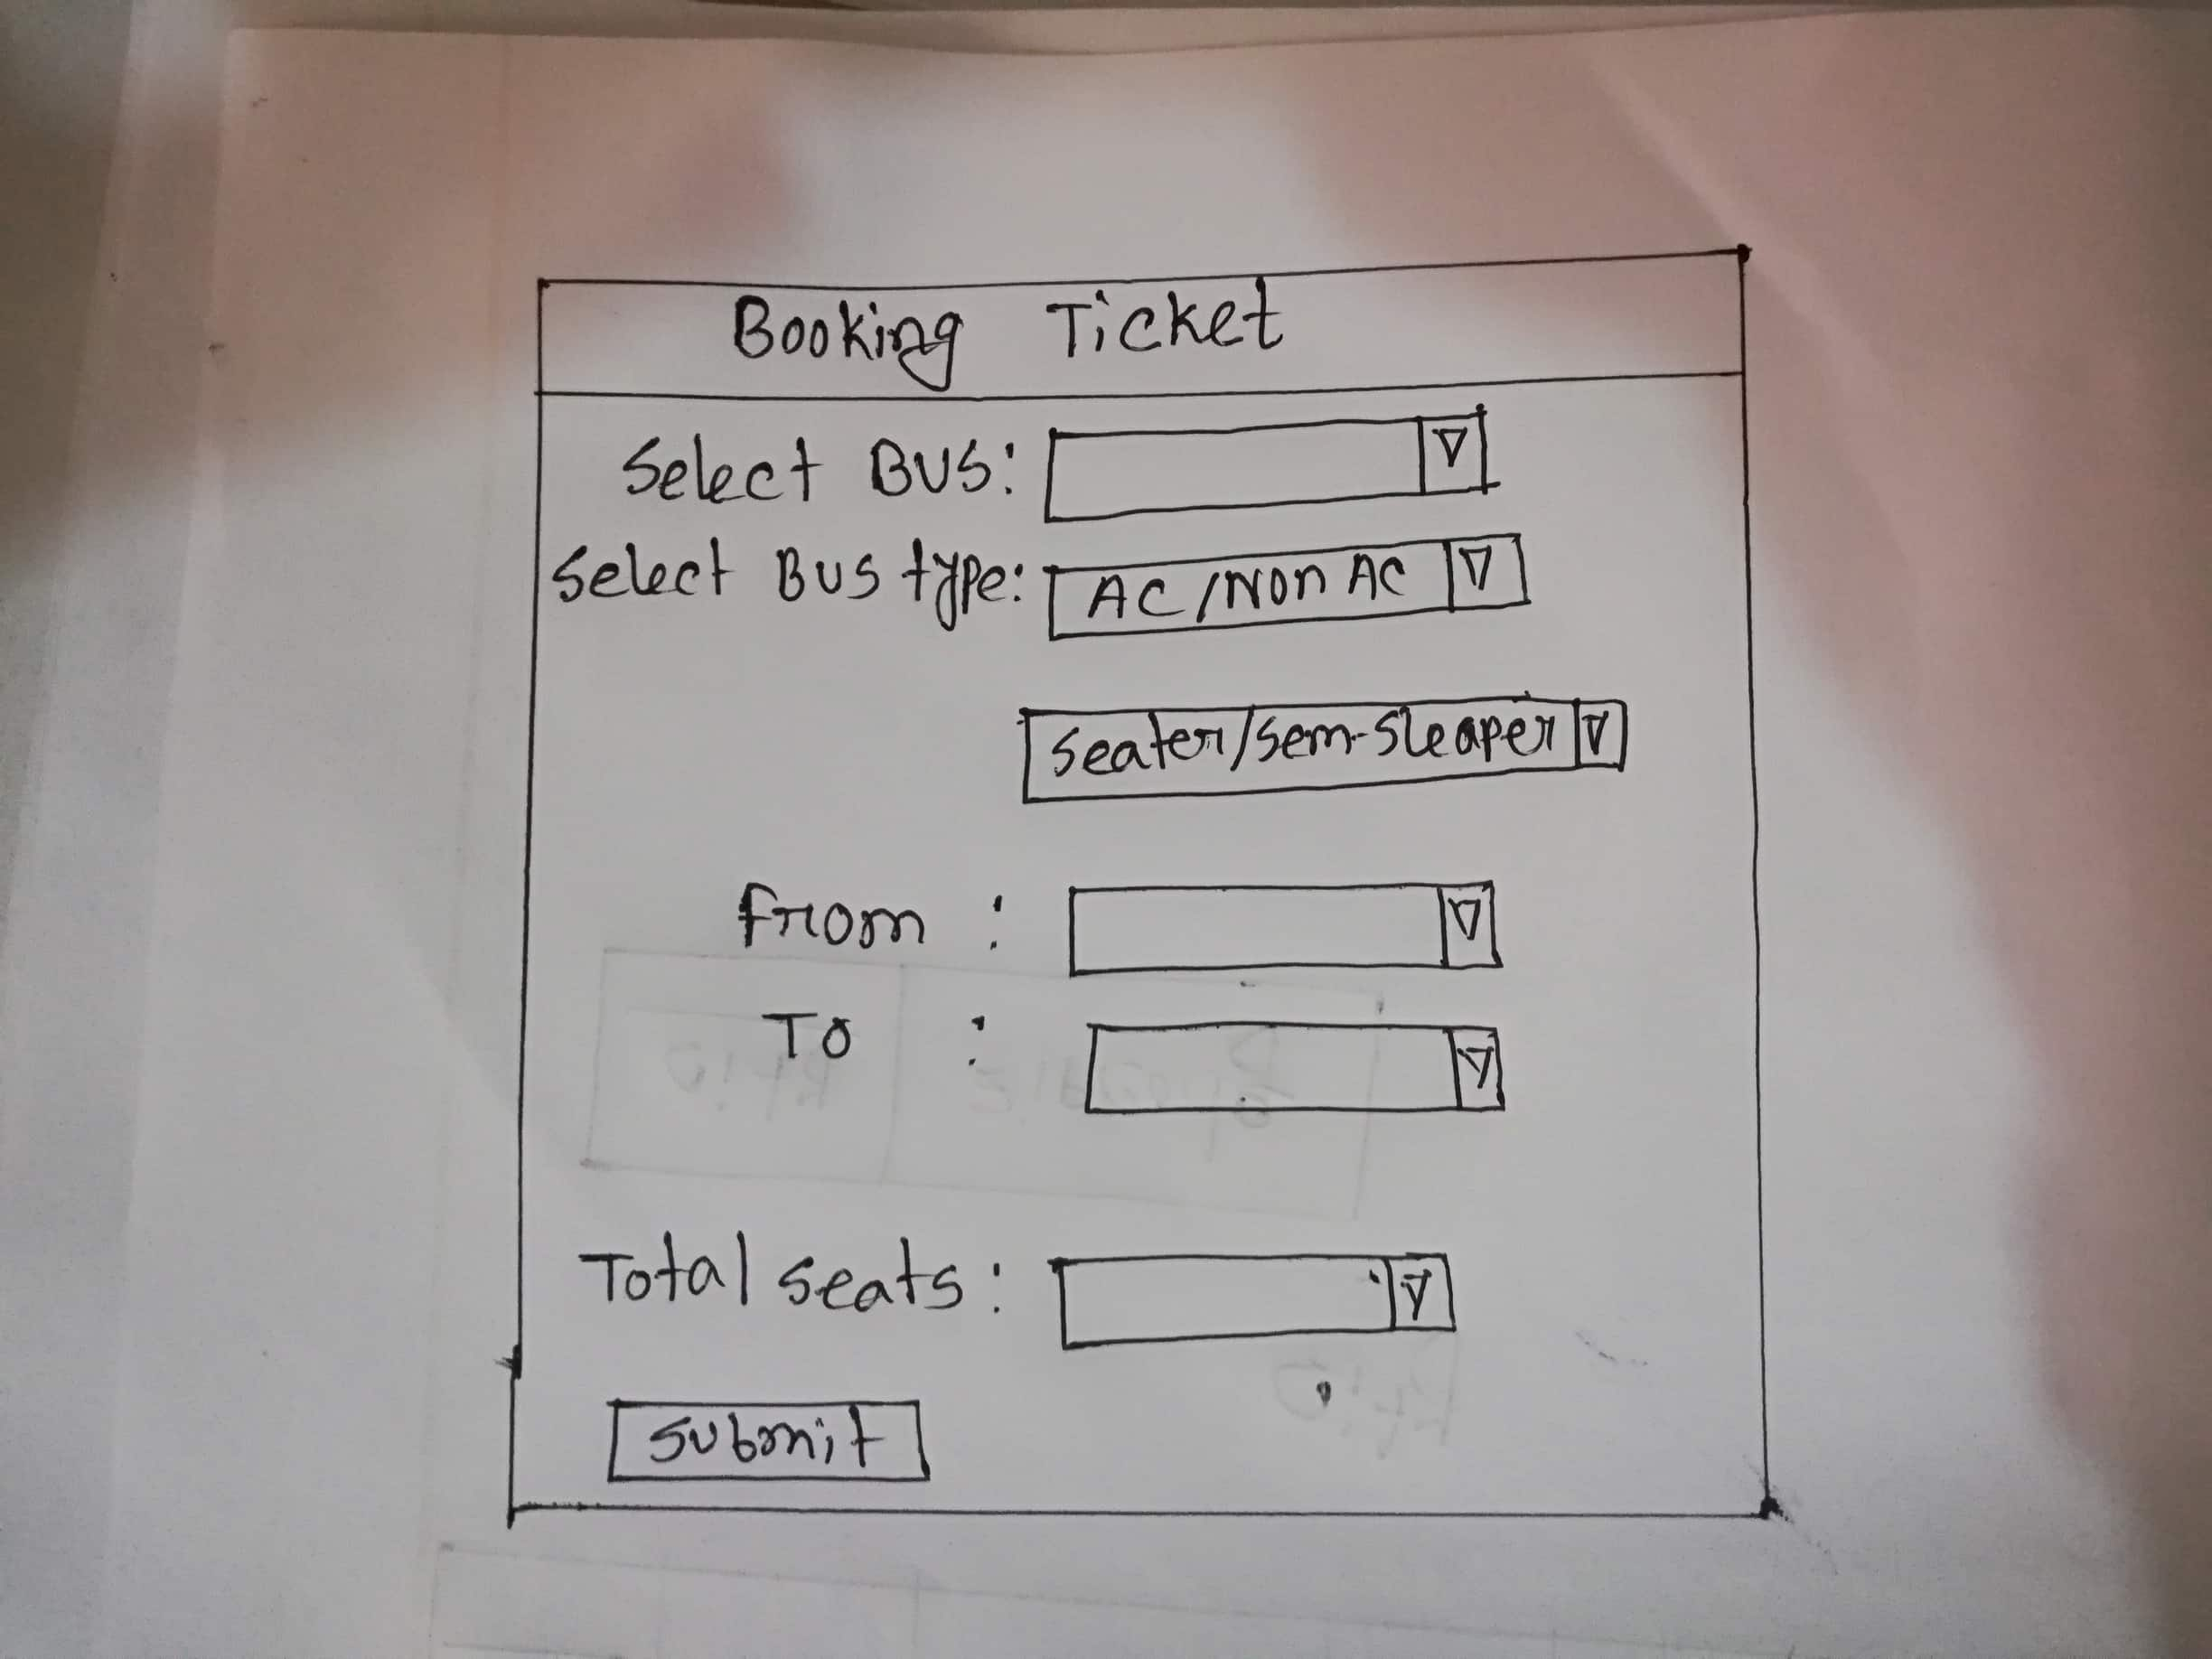 Booking Ticket
Select BUS:
Select Bus type: AC/Non AC
Seater/Sem-Sleaper
From :
To :
Total seats:
Submit